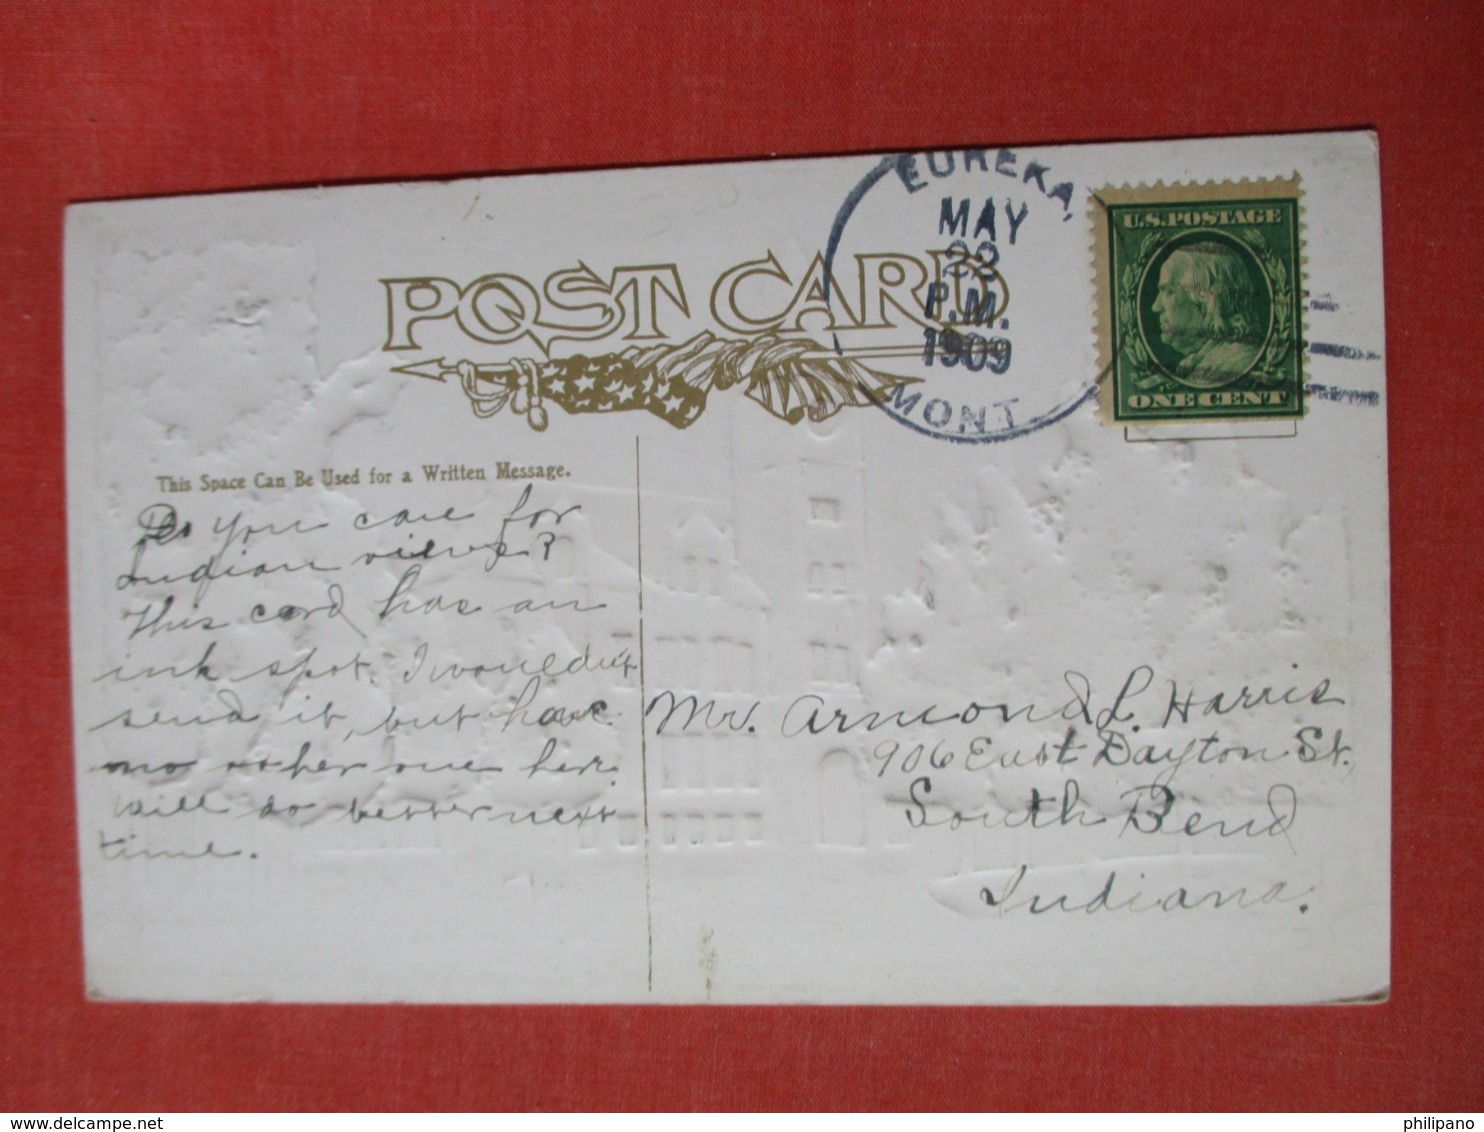 EUREKA,
MAY
22
P.M.
1909
MONT
U.S. POSTAGE
ONE CENT
POST CARD
This Space Can Be Used for a Written Message.
Do you care for
Indian views?
This card has an
ink spot. I wouldn't
send it, but have
no other one here.
Will do better next
time.
Mr. Armond L. Harris
906 East Dayton St.,
South Bend
Indiana.
philipano
delcampe.net